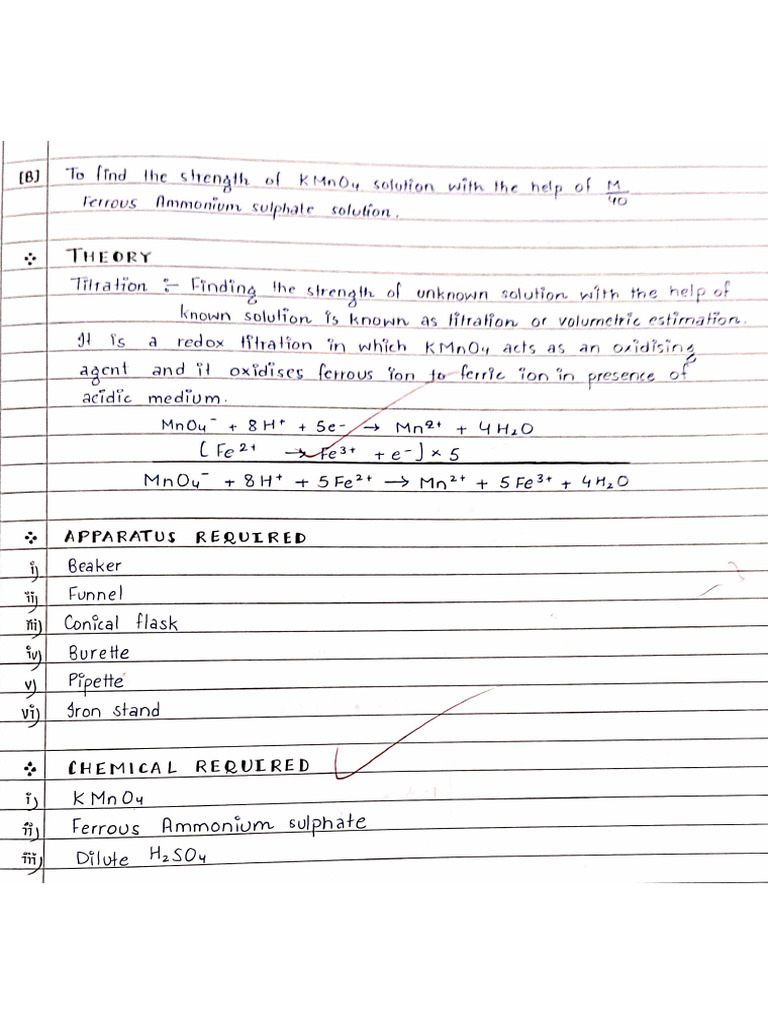 [B] To find the strength of KMnO₄ solution with the help of M/40
Ferrous Ammonium sulphate solution.
❖ THEORY
Titration :- Finding the strength of unknown solution with the help of
known solution is known as titration or volumetric estimation.
It is a redox titration in which KMnO₄ acts as an oxidising
agent and it oxidises ferrous ion to ferric ion in presence of
acidic medium.
MnO₄⁻ + 8H⁺ + 5e⁻ → Mn²⁺ + 4H₂O
[Fe²⁺ → Fe³⁺ + e⁻] × 5
MnO₄⁻ + 8H⁺ + 5Fe²⁺ → Mn²⁺ + 5Fe³⁺ + 4H₂O
❖ APPARATUS REQUIRED
i) Beaker
ii) Funnel
iii) Conical flask
iv) Burette
v) Pipette
vi) Iron stand
❖ CHEMICAL REQUIRED
i) KMnO₄
ii) Ferrous Ammonium sulphate
iii) Dilute H₂SO₄